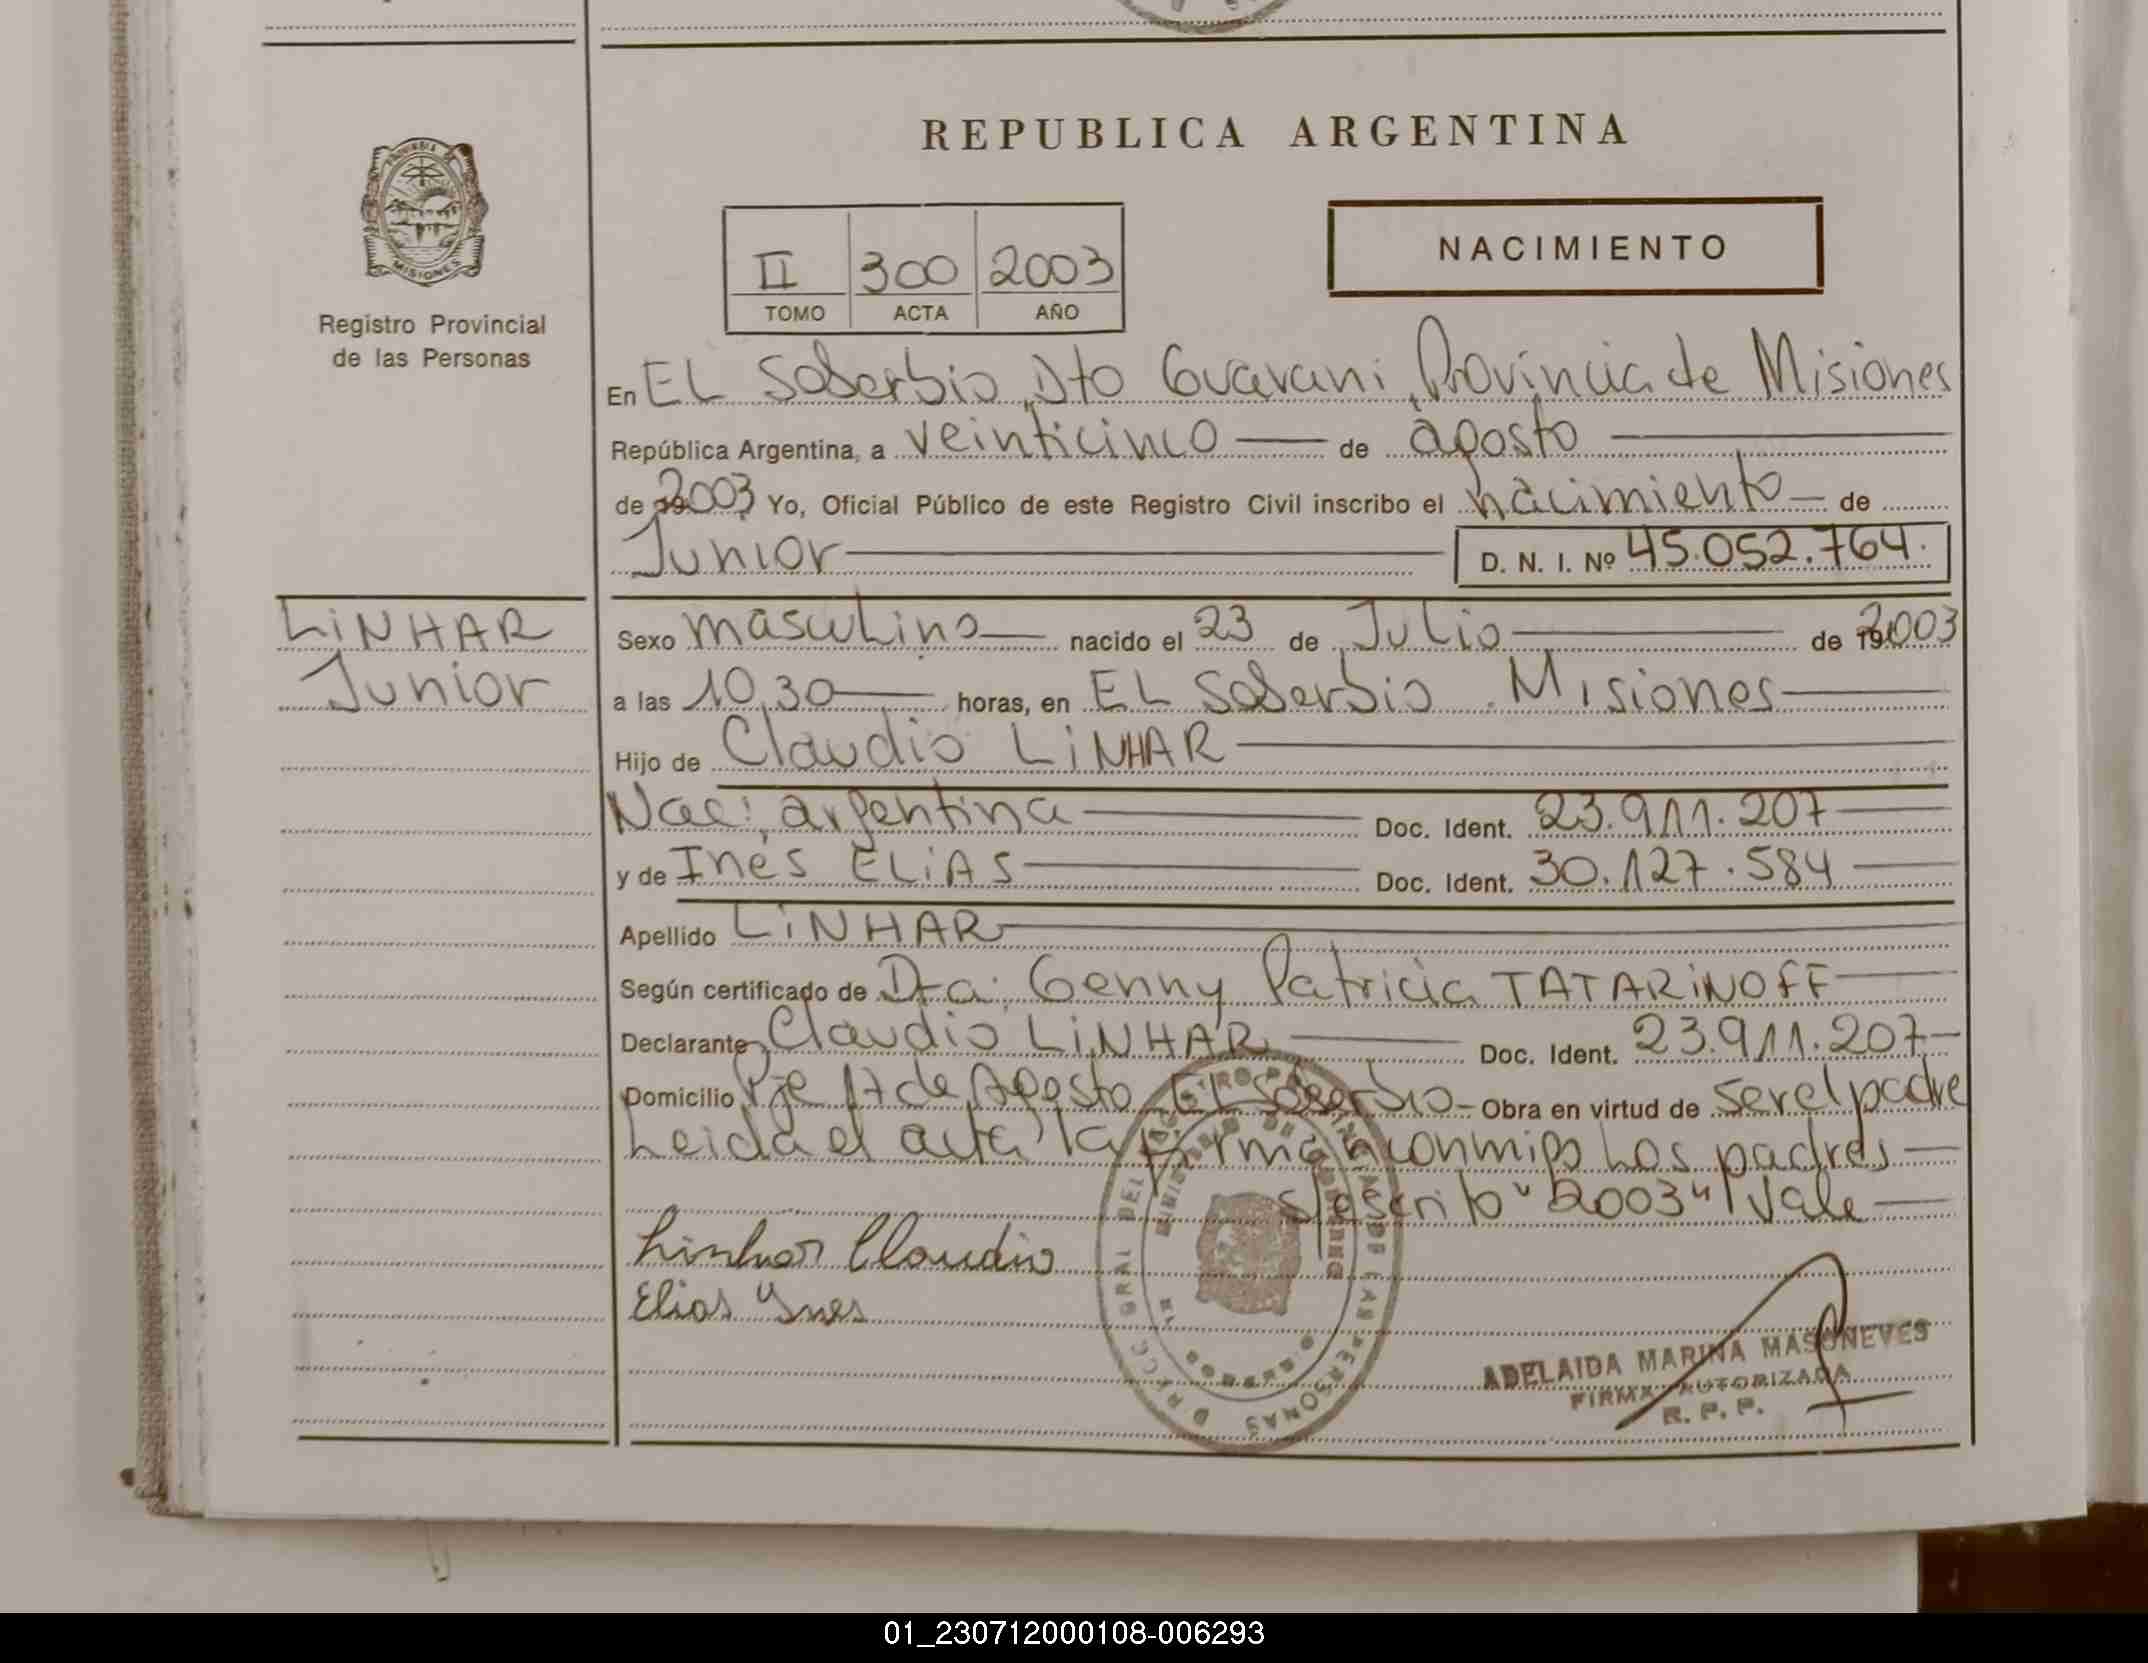 REPUBLICA ARGENTINA
PROVINCIA DE
MISIONES
Registro Provincial
de las Personas
II 300 2003
TOMO ACTA AÑO
NACIMIENTO
En EL Soberbio, Dto Guarani, Provincia de Misiones
República Argentina, a veinticinco de agosto
de 2003 Yo, Oficial Público de este Registro Civil inscribo el nacimiento de
Junior D. N. I. Nº 45.052.764.
LiNHAR
Junior
Sexo masculino nacido el 23 de Julio de 2003
a las 10,30 horas, en EL Soberbio. Misiones
Hijo de Claudio LiNHAR
Nac: argentina Doc. Ident. 23.911.207
y de Inés ELiAS Doc. Ident. 30.127.584
Apellido LiNHAR
Según certificado de Dra: Genny Patricia TATARiNOFF
Declarante Claudio LiNHAR Doc. Ident. 23.911.207
Domicilio Pje 17 de Agosto El Soberbio Obra en virtud de ser el padre
Leida el acta la firman conmigo Los padres
s/escrito "2003" Vale
Linhar Claudio
Elias Ynes
ADELAIDA MARINA MASONEVES
FIRMA AUTORIZADA
R. P. P.
01_230712000108-006293